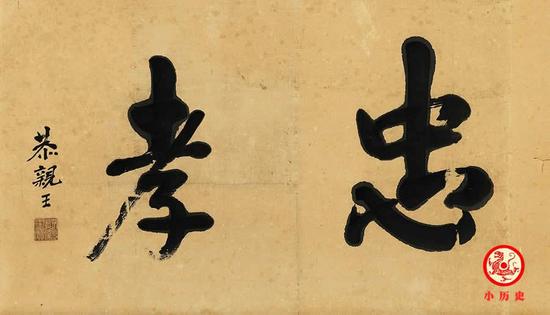 忠孝
恭親王
小历史